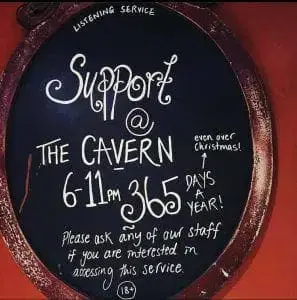 LISTENING SERVICE
Support
@
THE CAVERN
6-11PM 365 DAYS A YEAR!
even over Christmas!
Please ask any of our staff
if you are interested in
accessing this service.
18+